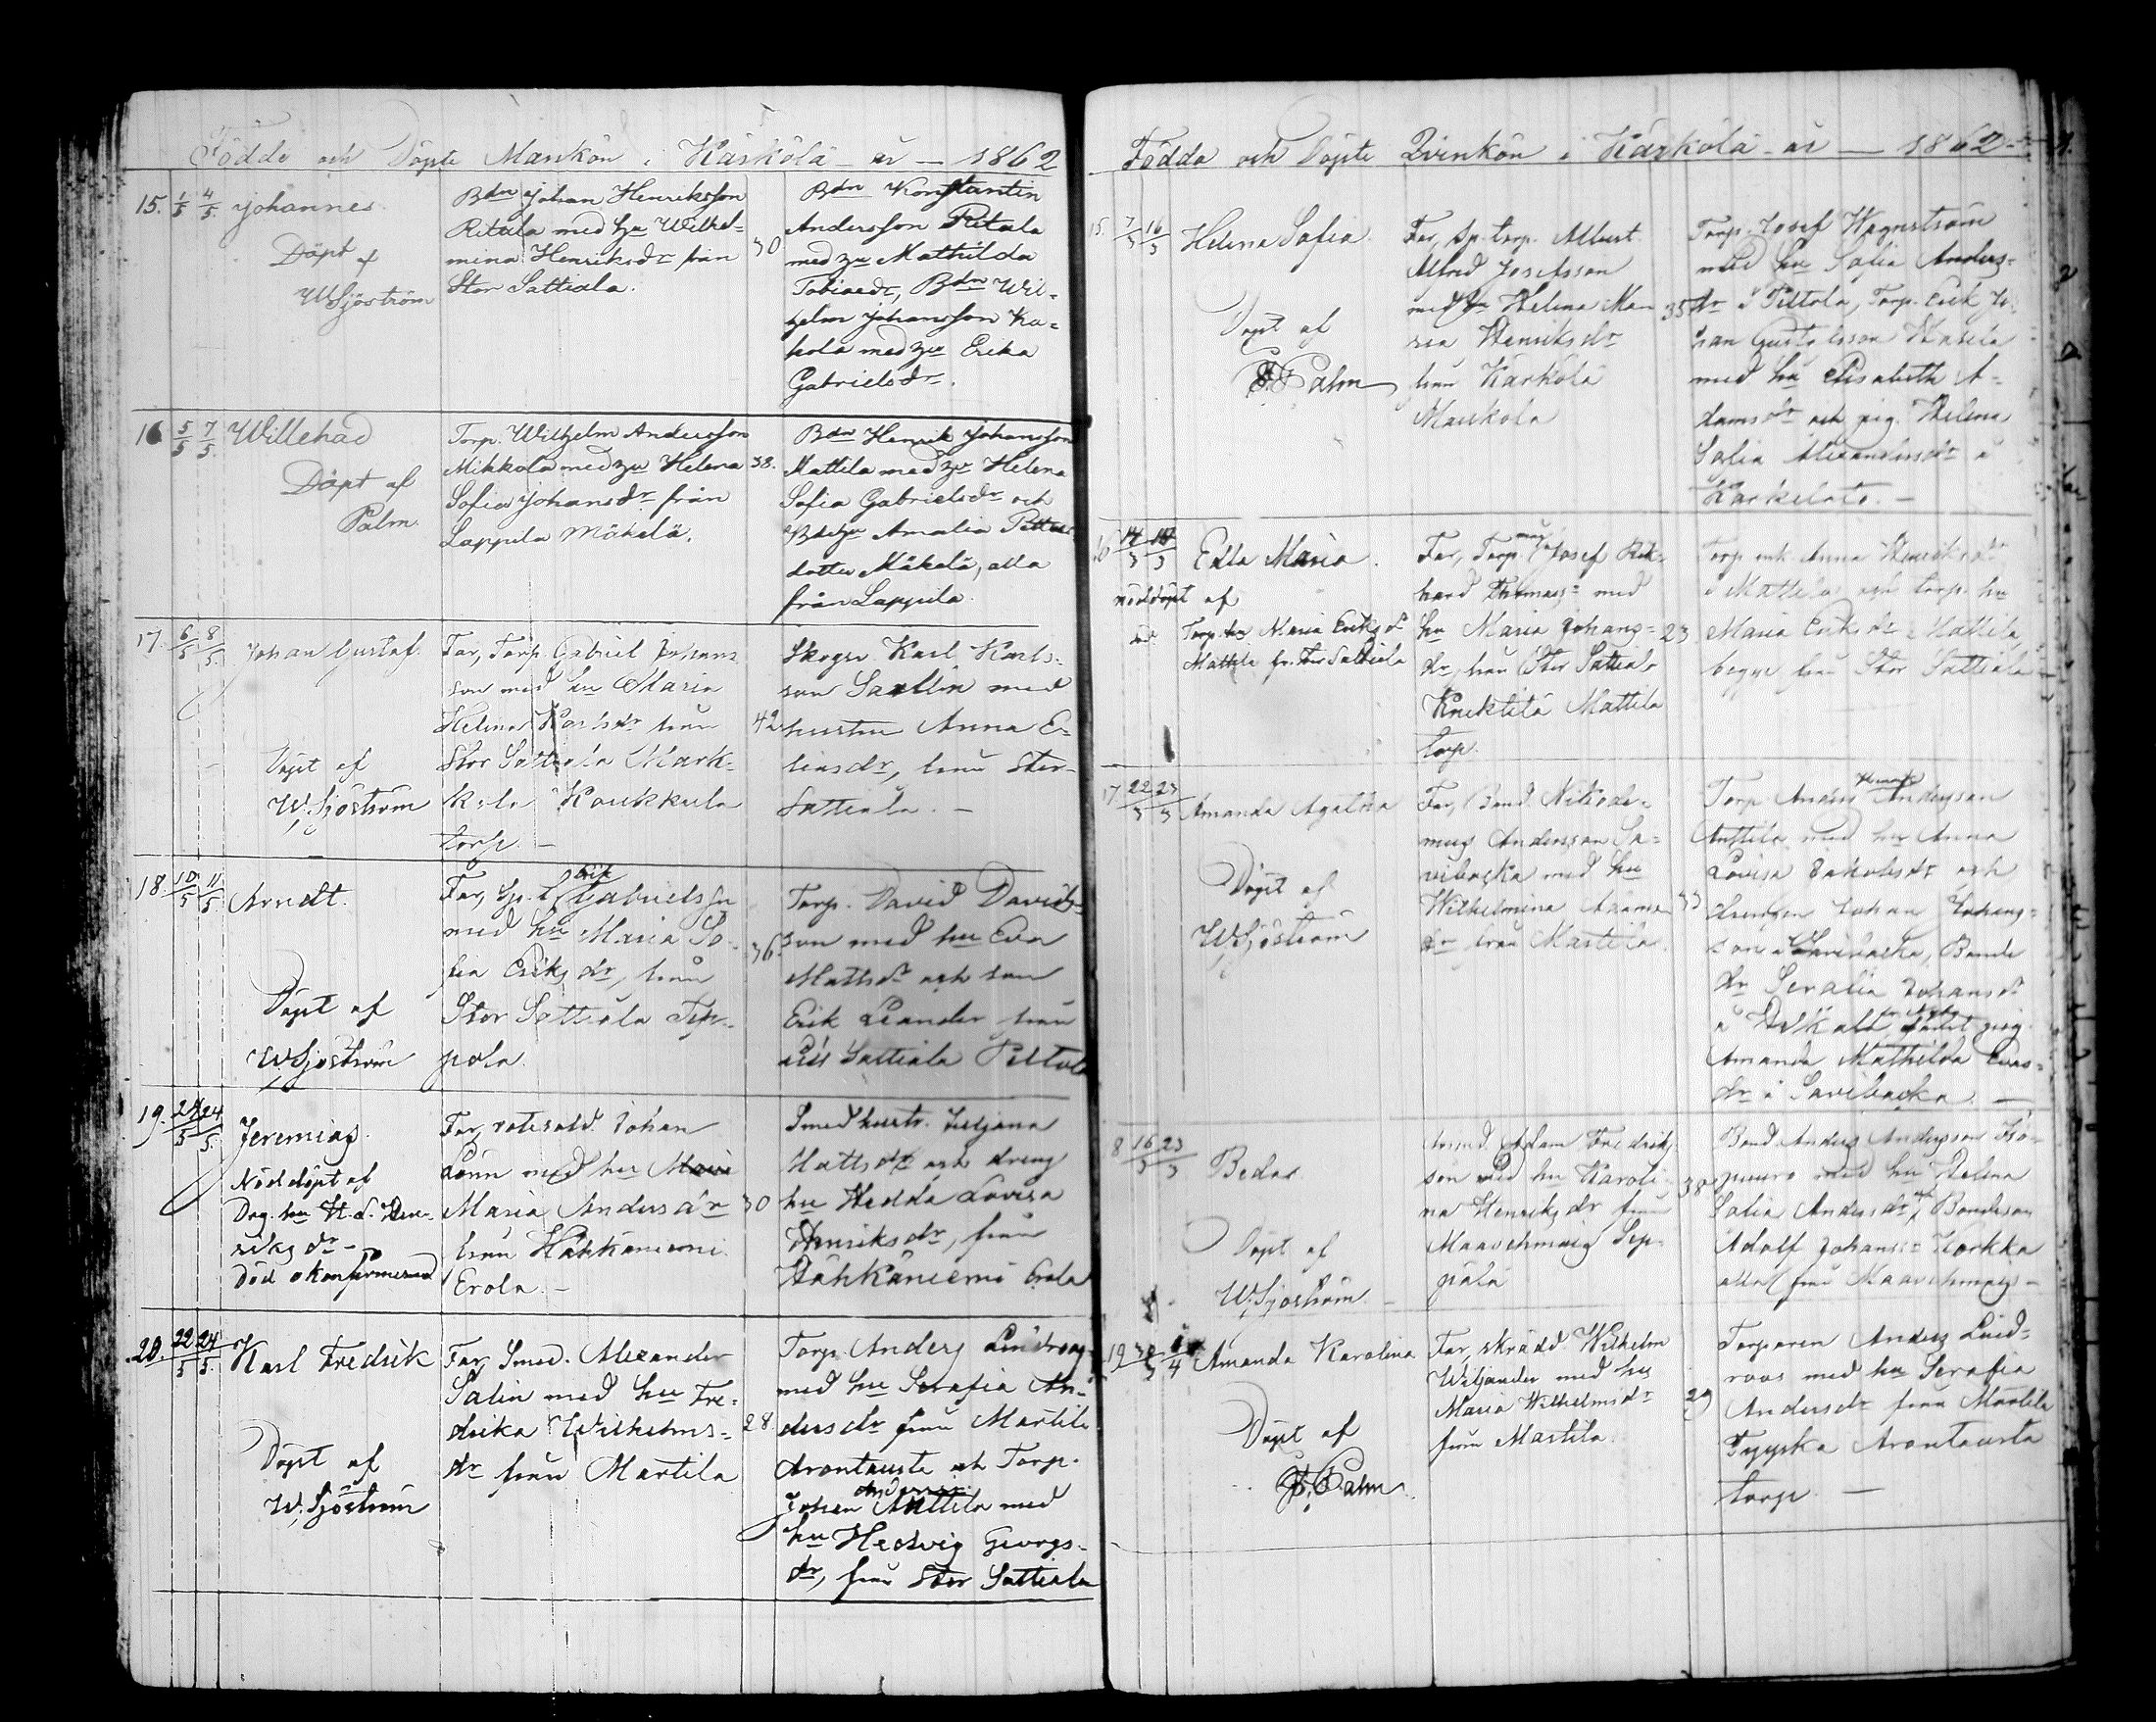 Födde och Döpte Mankön i Kärkölä år 1862
15. 1/5 4/5. Johannes.
Döpt af
W Sjöström
Bdn Johan Henriksson
Ritula med hu Wilhel-
mina Henriksdr från
Stor Sattiala.
30
Bdn Konstantin
Andersson Ritala
med hu Mathilda
Tobiaedr, Bdn Wil-
helm Johansson Ka-
hola med hu Erika
Gabrielsdr.
16 5/5 7/5. Willehad
Döpt af
Palm.
Torp. Wilhelm Andersson
Mikkola med hu Helena
Sofia Johansdr från
Lappila Mäkelä.
38.
Bdn Henrik Johansson
Mattila med hu Helena
Sofia Gabrielsdr och
Bdehu Amalia
dotter Mäkelä, alla
från Lappila.
17. 6/5 8/5. Johan Gustaf.
Döpt af
W. Sjöström
Far, Torp. Gabriel Johans
son med hu Maria
Helena Karlsdr från
Stor Sattiala Mark-
kola Koukkula
torp. –
42
Skogv. Karl Karls-
son Sarlin med
hustru Anna E-
liasdr, från Stor-
Sattiala. –
18 10/5 11/5 Arndt.
Döpt af
W Sjöström
Far, Sp. t. Erik Gabrielsson
med hu Maria So-
fia Eriksdr, från
Stor Sattiala Tep-
pola.
36.
Torp. David Davids-
son med hu Eva
Mattsdr och son
Erik Leander från
Sattiala Pittola
19. 24/5 24/5. Jeremias.
Nöddöpt af
Dag. hu H. L. Hen-
riksdr –
Död okonfirmerad
Far, rotesold. Johan
Lönn med hu
Maria Andersdr
från Hähkäniemi
Erola. –
30
Smedhustr. Juljana
Mattsdr och dreng
hu Hedda Lovisa
Henriksdr, från
Hähkäniemi Erola
20. 22/5 24/5. Karl Fredrik
Döpt af
W. Sjöström
Far, Smed. Alexander
Salin med hu Fre-
drika Wilhelms-
dr från Martila
28.
Torp. Anders Lindroos
med hu Serafia An-
dersdr från Martila
Arontausta och Torp.
Johan Andersson Anttila med
hu Hedvig Georgs-
dr, från Stor Sattiala
Födda och Döpte Qvinkön i Kärkölä år — 1862
15. 7/3 16/3 Helena Sofia.
Döpt af
Palm
Far, Sp. torp. Albert
Alfred Josefsson
med hu Helena Ma-
ria Henriksdr
från Kärkölä
Maukola
35
Torp. Josef Wagnström
med hu Sofia Anders-
dr i Pittola, Torp. Erik Jo-
han Gustafsson
med hu Elisabeth A-
damsdr och pig. Helena
Sofia Alexandersdr i
16 14/3 Edla Maria.
nöddöpt af
Torp. hu Maria Eriksdr
Mattila fr. Stor Sattiala
Far, Torp. måg Josef Rik-
hard Thomass: med
hu Maria Johans-
dr, från Stor Sattiala
Knuktila Mattila
torp.
23
Torp. enk. Anna Henriksdr
i Mattila och torp. hu
Maria Eriksdr Mattila,
begge från Stor Sattiala
17 22/3 23/3 Amanda Agatha
Döpt af
W Sjöström
Far, Bond. Nikode-
mus Andersson Sa-
vibacka med hu
Wilhelmina Adams
dr från Martila.
33
Torp. Anders Andersson
Anttila med hu Anna
Lovisa Jakobsdr och
drengen Johan Johans-
son i Savibacka, Bonde
dr Serafia Johansdr
i samt pig.
Amanda Mathilda
dr i Savibacka. —
8 16/3 23/3 Beda.
Döpt af
W. Sjöström. –
Adam Fredriks
son med hu Karoli-
na Henriksdr från
Maavehmais Sep-
pälä
38
Bond. Anders Andersson Iso-
puuro med hu Helena
Sofia Andersdr, Bondeson
Adolf Johanss: Korkka
alla från Maavehmais –
19 Amanda Karolina
Döpt af
Palm.
Far, skrädd. Wilhelm
Wiljander med hu
Maria Wilhelmsdr
från Martila.
29
Torparen Anders Lind-
roos med hu Serafia
Andersdr från Martila
Tyyskä Arontausta
torp. —